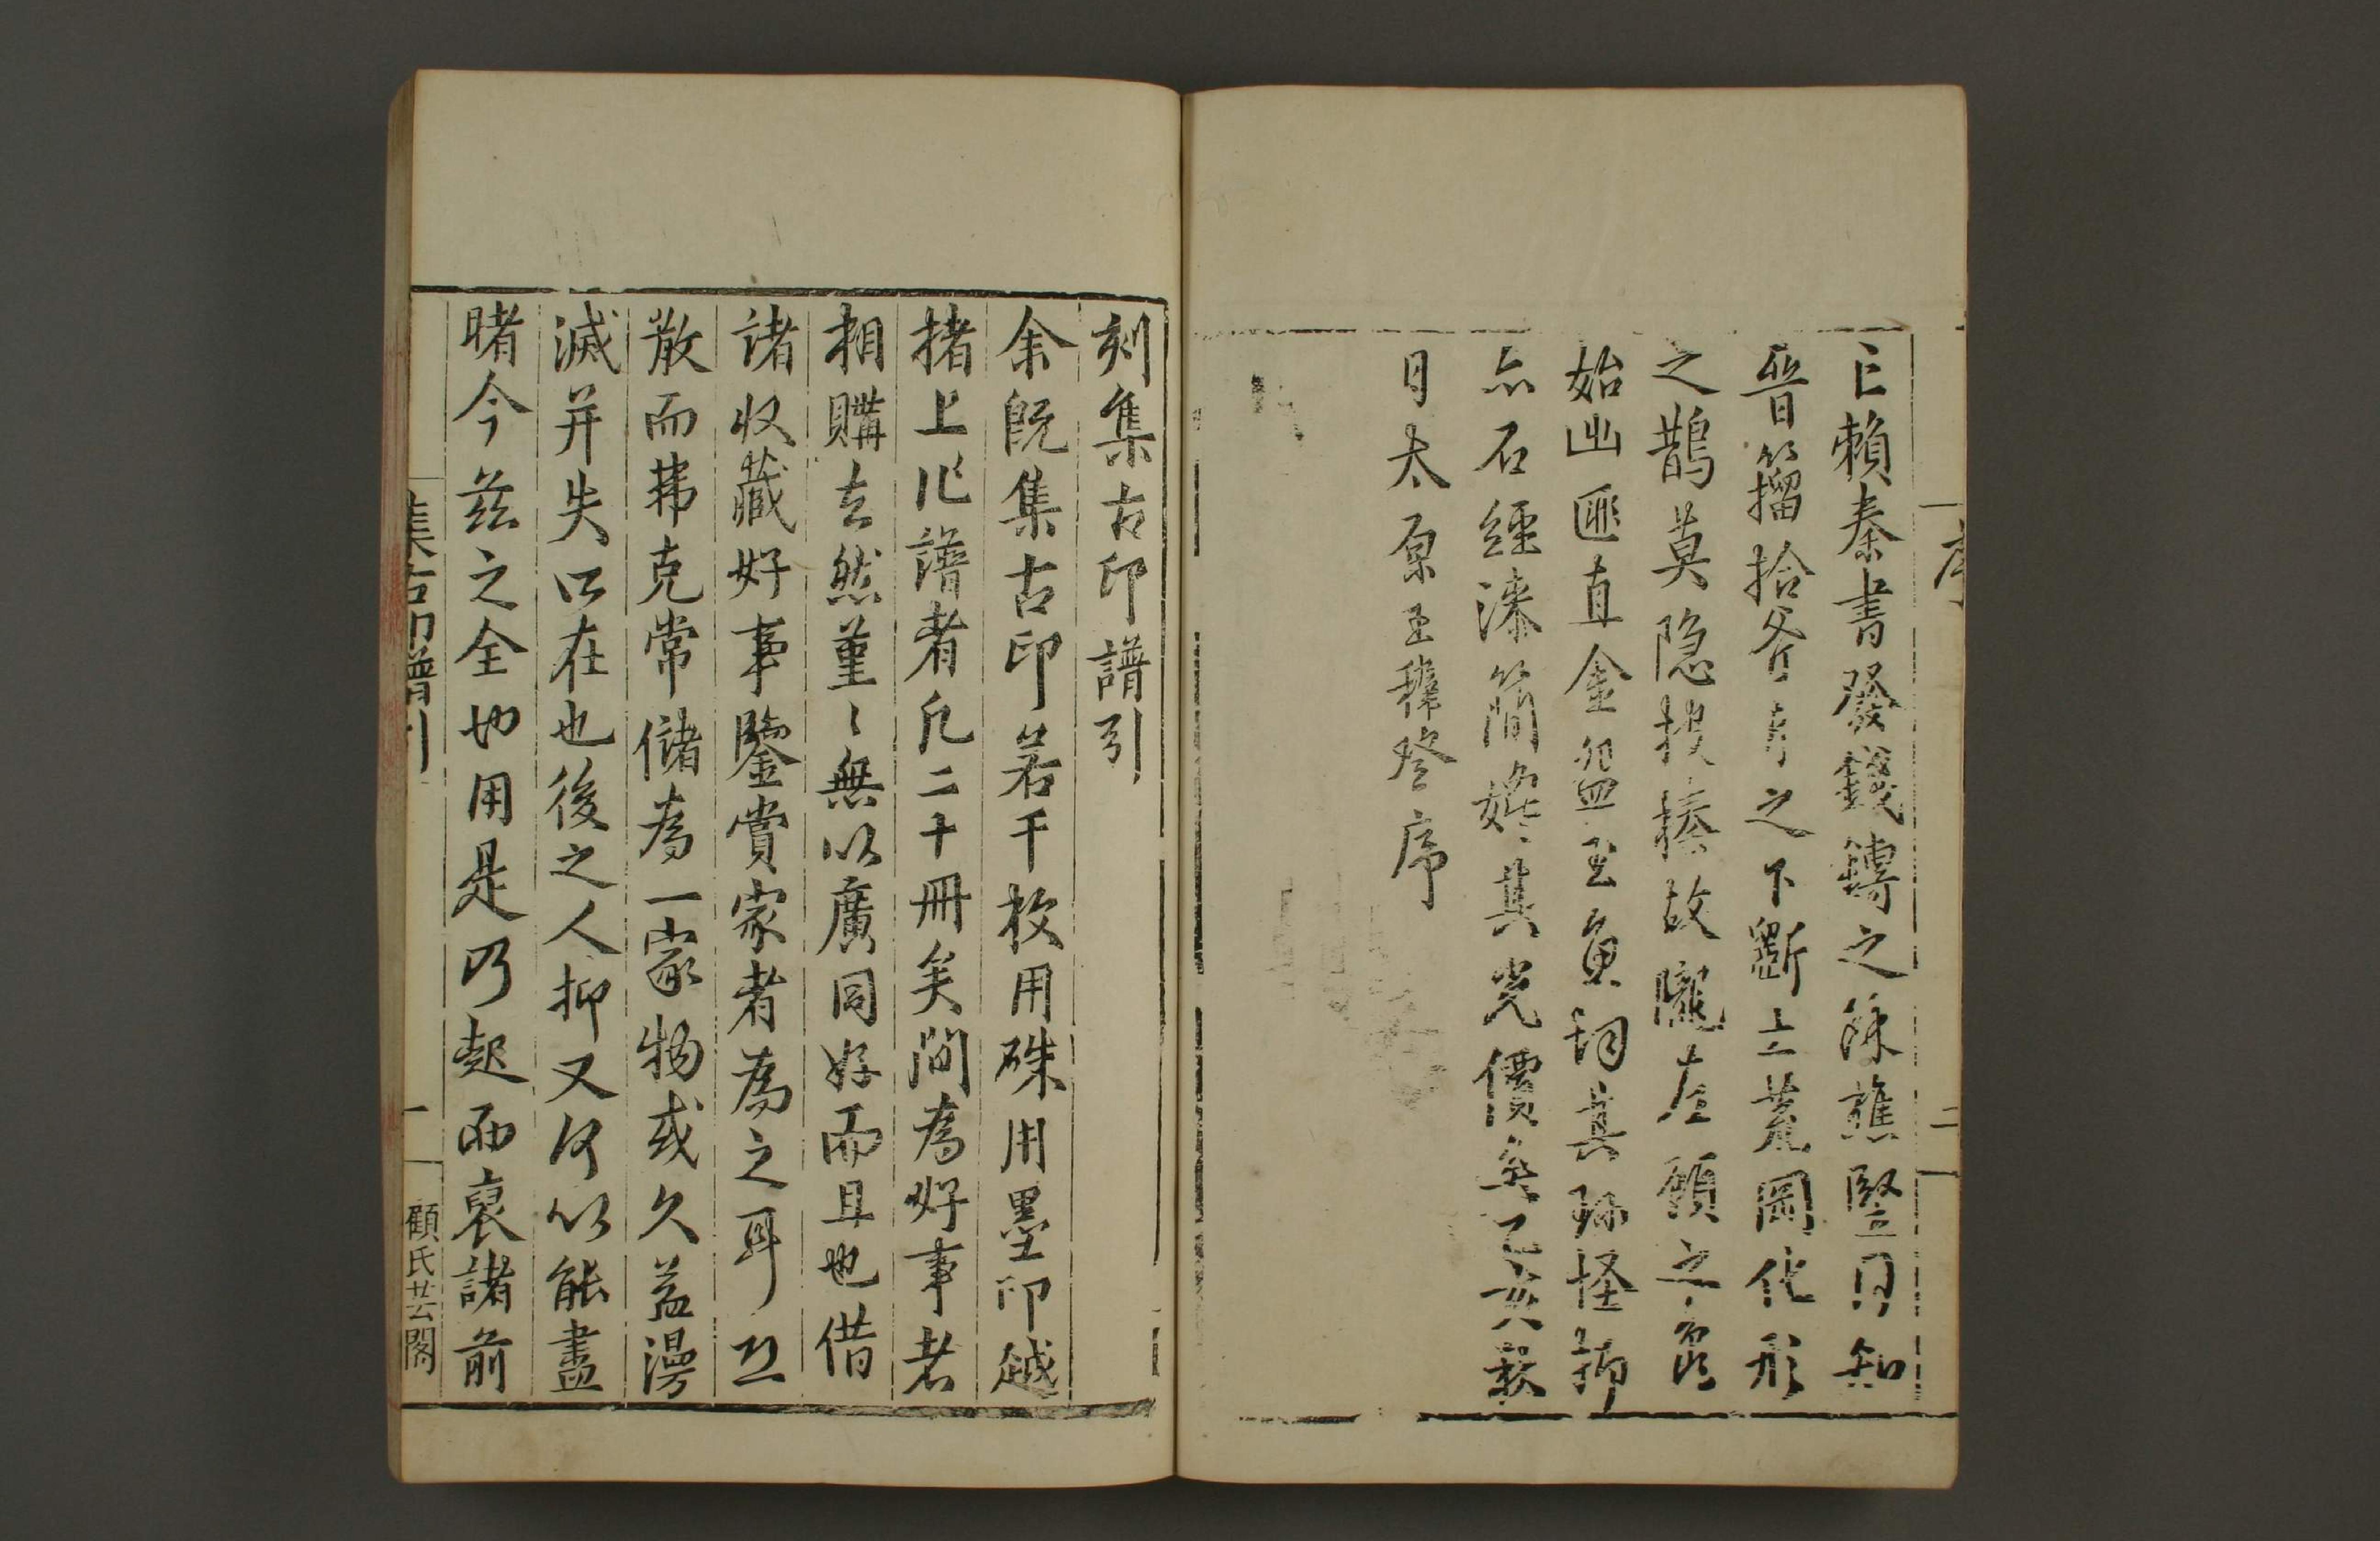 序
二
已賴秦書發錢鎛之餘蕉豎目知
晉籀拾斧斤之下斷土荒岡化形
之鵲莫隠投榛故隴左顧之龜
始出匪直金盌玉魚詞其珎怪抑
亦石經漆簡嫓其光價矣乙亥秋
日太原王穉登序
刻集古印譜引
余既集古印若干枚用硃用墨印越
楮上作譜者凡二十冊矣間為好事者
相購去然堇〻無以廣同好而且也借
諸收藏好事鑒賞家者為之耳亟
散而弗克常儲為一家物或久益漫
滅并失所在也後之人抑又何以能盡
睹今茲之全也用是乃起而裒諸前
集古印譜引
一
顧氏芸閣